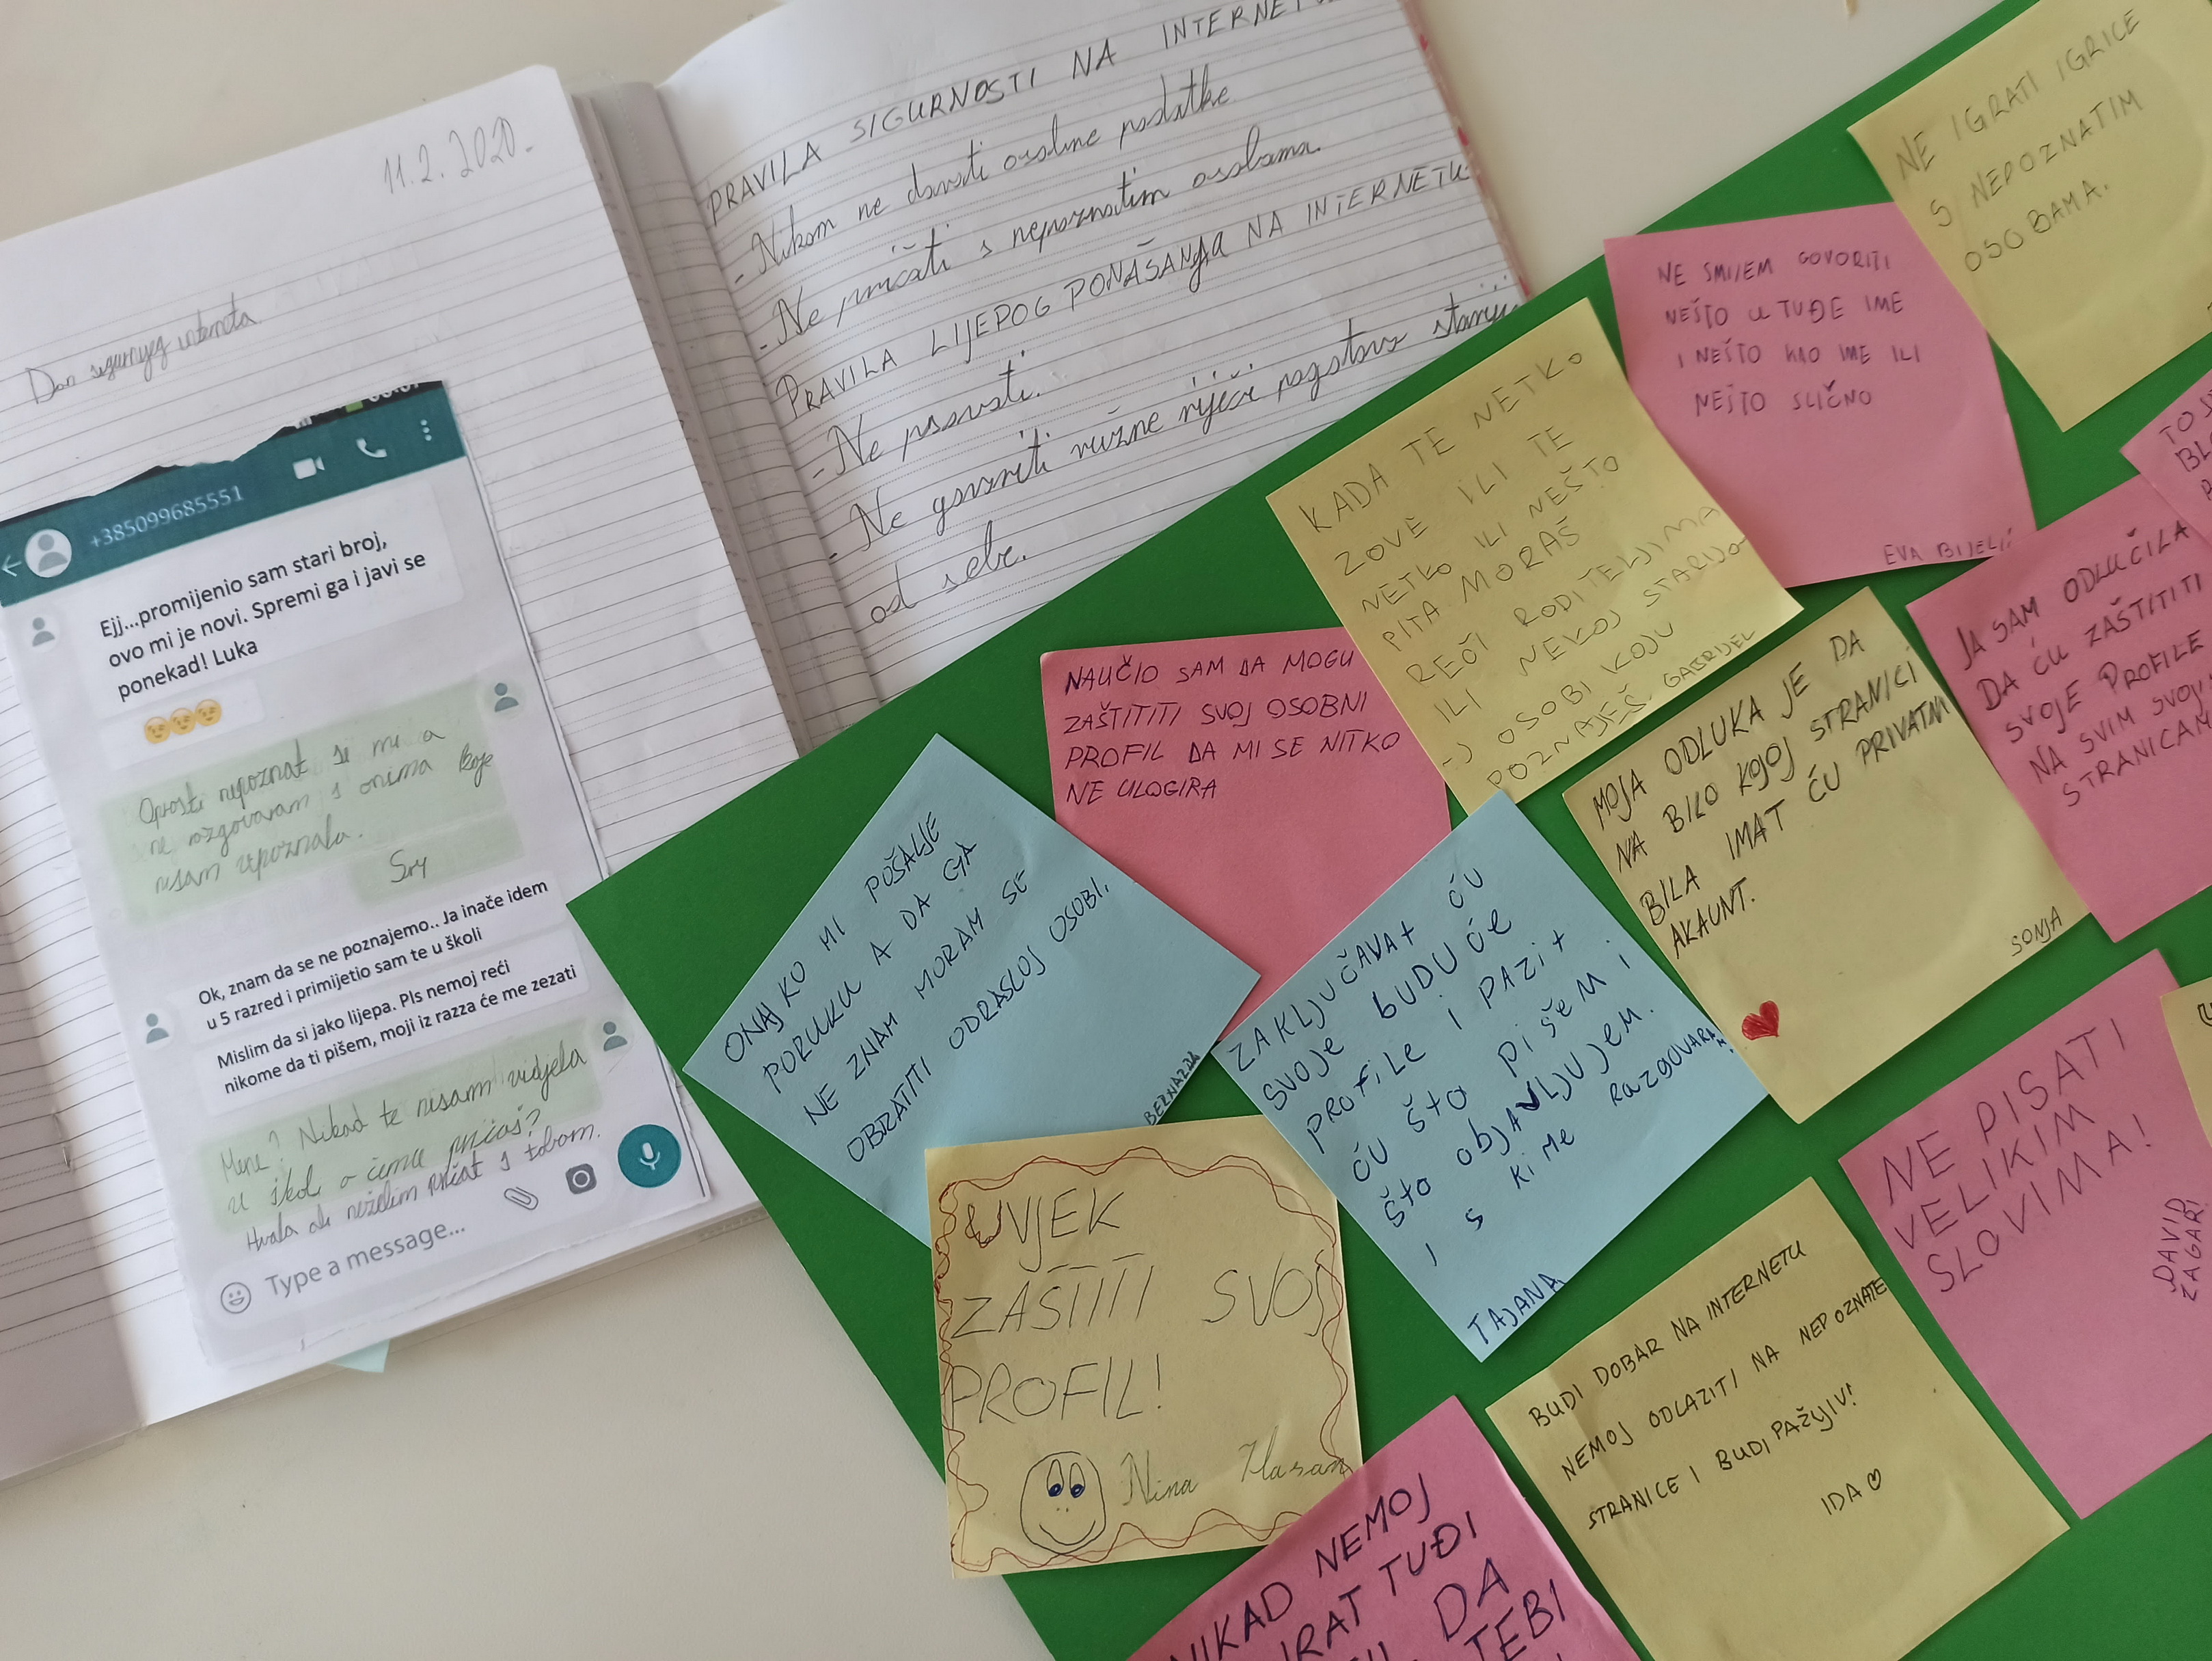 11.2.2020.
Dan sigurnijeg interneta
+385099685551
Ejj...promijenio sam stari broj,
ovo mi je novi. Spremi ga i javi se
ponekad! Luka
Oprosti nepoznat si mi a
ne razgovaram s onima koje
nisam upoznala.
Sry
Ok, znam da se ne poznajemo.. Ja inače idem
u 5 razred i primijetio sam te u školi
Mislim da si jako lijepa. Pls nemoj reći
nikome da ti pišem, moji iz razza će me zezati
Mene? Nikad te nisam vidjela
u školi o čemu pričaš?
Hvala ali neželim pričat s tobom.
Type a message...
PRAVILA SIGURNOSTI NA INTERNETU
- Nikom ne davati osobne podatke
- Ne pričati s nepoznatim osobama.
PRAVILA LIJEPOG PONAŠANJA NA INTERNETU
- Ne psovati.
- Ne govoriti ružne riječi pogotovo starij
od sebe.
NE IGRATI IGRICE
S NEPOZNATIM
OSOBAMA.
NE SMIJEM GOVORITI
NEŠTO U TUĐE IME
I NEŠTO KAO IME ILI
NEŠTO SLIČNO
EVA BIJELIĆ
KADA TE NETKO
ZOVE ILI TE
NETKO ILI NEŠTO
PITA MORAŠ
REĆI RODITELJIMA
ILI NEKOJ STARIJO-
-J OSOBI KOJU
POZNAJEŠ GABRIJEL
NAUČIO SAM DA MOGU
ZAŠTITITI SVOJ OSOBNI
PROFIL DA MI SE NITKO
NE ULOGIRA
JA SAM ODLUČILA
DA ĆU ZAŠTITITI
SVOJE PROFILE
NA SVIM SVOJI
STRANICAM
MOJA ODLUKA JE DA
NA BILO KOJOJ STRANICI
BILA IMAT ĆU PRIVATNI
AKAUNT.
SONJA
ONAJ KO MI POŠALJE
PORUKU A DA GA
NE ZNAM MORAM SE
OBRATITI ODRASLOJ OSOBI.
ZAKLJUČAVAt ĆU
SVOJE bUDUĆE
PROFiLE i PAZit
ĆU ŠtO PiŠEM i
ŠtO ObJAVLJUJEM.
i S KiME RAZGOVARAM.
TAJANA
UVJEK
ZAŠTITI SVOJ
PROFIL!
Nina Hasan
NE PISATI
VELIKIM
SLOVIMA!
DAVID
ŽAGAR!
BUDI DOBAR NA INTERNETU
NEMOJ ODLAZITI NA NEPOZNATE
STRANICE I BUDI PAŽLJIV!
IDA
NIKAD NEMOJ
TUĐI
DA
TEBI